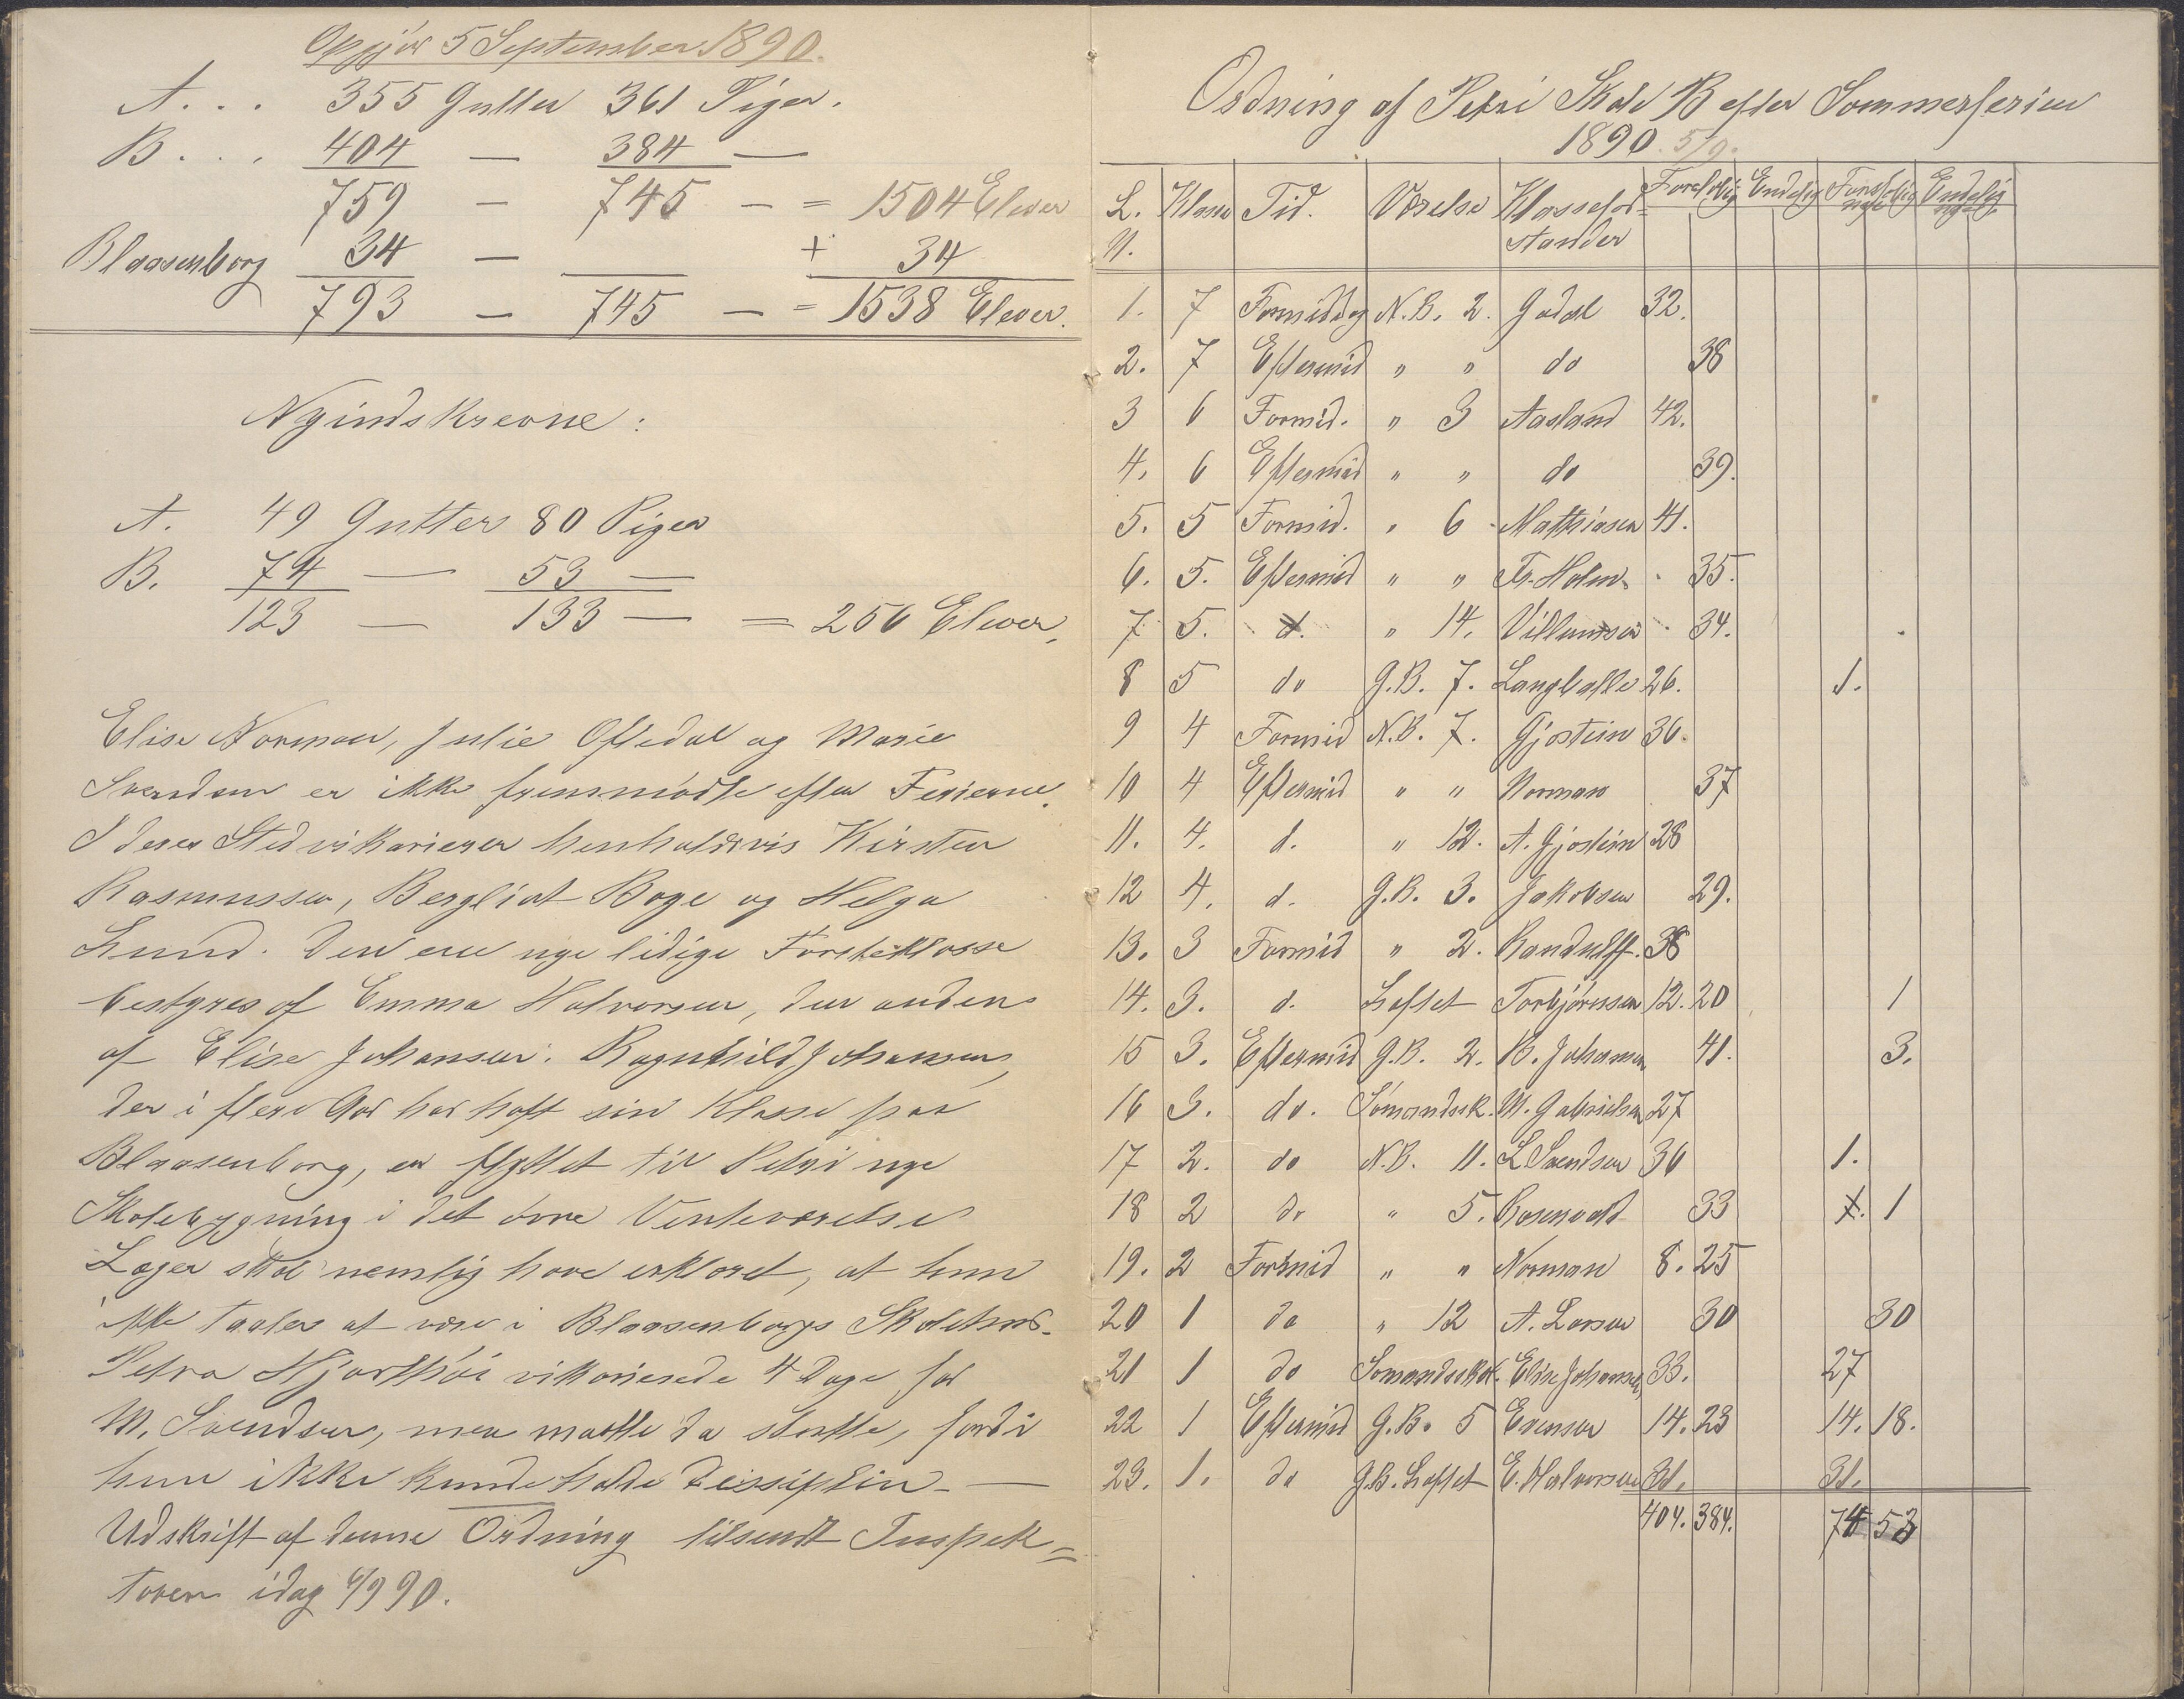 Opgjör 5 September 1890.
A. . . 355 Gutter 361 Piger.
B. . . 404 — 384 —
759 — 745 — = 1504 Elever
Blaasenborg 34 — + 34
793 — 745 — = 1538 Elever.
Nyindskrevne:
A. 49 Gutter 80 Piger
B. 74 — 53 —
123 — 133 — = 256 Elever.
Elise Norman, Julie Oftedal og Marie
Svendsen er ikke fremmødte efter Ferierne.
I deres Sted vikarierer henholdsvis Kirsten
Rasmussen, Bergliot Boge og Helga
Lund. Den ene nye ledige Førsteklasse
bestyres af Emma Halvorsen, den anden
af Elise Johansen. Ragnhild Johansen,
der i flere Aar har havt sin Klasse paa
Blaasenborg, er flyttet til Petri nye
Skolebygning i det övre Venteværelse
Læger skal nemlig have erklæret, at hun
ikke taaler at være i Blaasenborgs Skolehus.
Petra Hjorthöi vikarierede 4 Dage for
M. Svendsen, men maatte da slutte, fordi
hun ikke kunde holde Dissiplin. —
Udskrift af denne Ordning tilsendt Inspek=
toren idag 6/9 90.
Ordning af Petri Skole B efter Sommerferien
1890. 5/9.
L. Klasse Tid. Værelse Klassefor= Foreløbig Endelig Foreløbig Endelig
N. stander nye nye
1. 7 Formiddag N.B. 2. Gadal 32.
2. 7 Eftermid " " do 38
3 6 Formid. " 3 Aasland 42.
4. 6 Eftermid " " do 39.
5. 5 Formid. " 6 Mathiasen 41.
6. 5. Eftermid " " Fr. Holm 35.
7 5. d. " 14. Villumsen 34.
8 5 do G.B. 7. Langballe 26. 1.
9 4 Formid N.B. 7. Gjøstein 36.
10 4 Eftermid " " Norman 37
11. 4. d. " 12. A. Gjøstein 28
12 4. d. G.B. 3. Jakobsen 29.
13. 3 Formid " 2. Randulff. 38
14. 3. d. Loftet Torbjørnsen 12. 20 1
15 3. Eftermid G.B. 2. B. Johansen 41. 3.
16 3. do. Sömandssk. M. Gabrielsen 27
17 2. do N.B. 11. L Svendsen 36 1.
18 2 do " 5. Rosenvold 33 1. 1
19. 2 Formid " " Norman 8. 25
20 1 do " 12 A. Larsen 30 30
21 1 do Sømandsskol. Elise Johansen 33. 27
22 1 Eftermid G.B. 5 Evensen 14. 23 14. 18.
23. 1. do G.B. Loftet E. Halvorsen 31. 31.
404. 384. 74 53